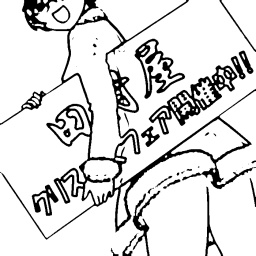 田　屋
クリスマフェア開催中!!